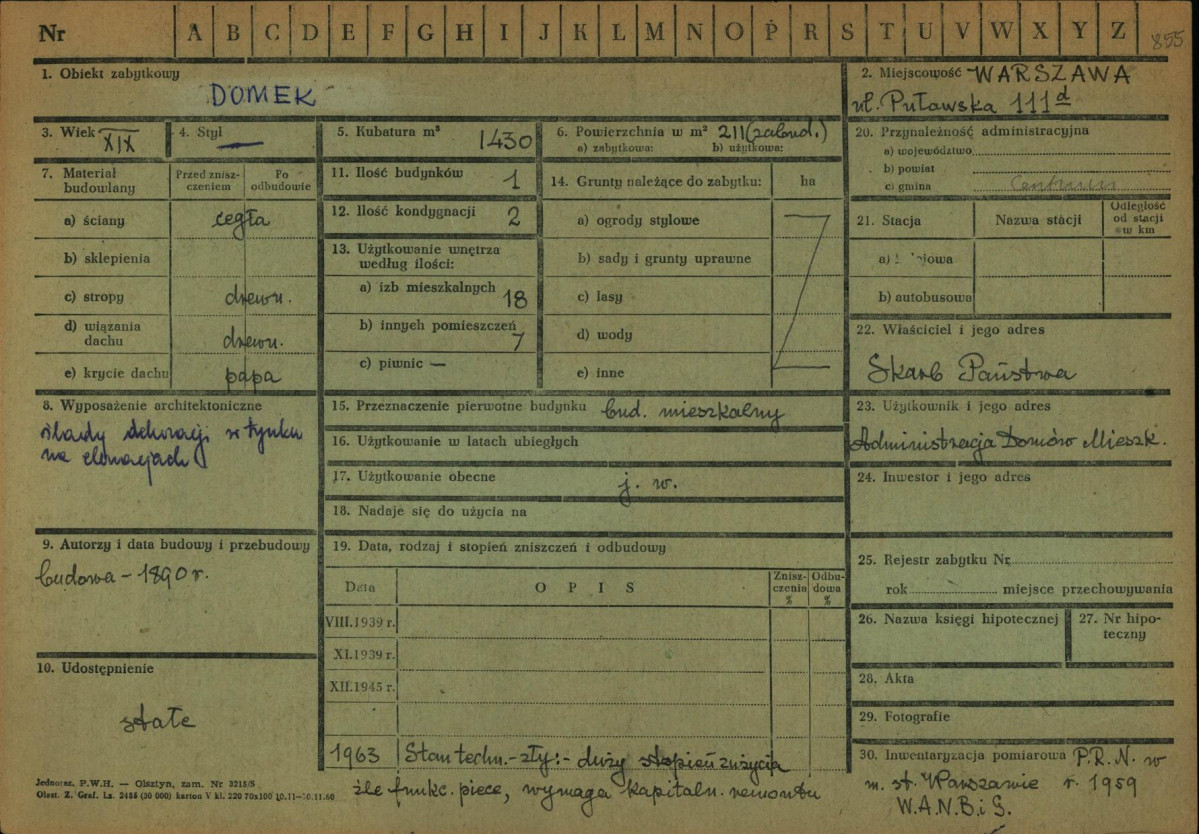 Nr A B C D E F G H I J K L M N O P R S T U V W X Y Z 855
1. Obiekt zabytkowy
DOMEK
2. Miejscowość WARSZAWA
ul. Puławska 111d
3. Wiek XIX
4. Styl —
5. Kubatura m³ 1430
6. Powierzchnia w m² 211 (zabud.)
a) zabytkowa: b) użytkowa:
20. Przynależność administracyjna
a) województwo
b) powiat
c) gmina Centrum
7. Materiał budowlany
Przed zniszczeniem
Po odbudowie
a) ściany cegła
b) sklepienia
c) stropy drewn.
d) wiązania dachu drewn.
e) krycie dachu papa
11. Ilość budynków 1
12. Ilość kondygnacji 2
13. Użytkowanie wnętrza
według ilości:
a) izb mieszkalnych 18
b) innych pomieszczeń 7
c) piwnic —
14. Grunty należące do zabytku: ha
a) ogrody stylowe
b) sady i grunty uprawne
c) lasy
d) wody
e) inne
21. Stacja Nazwa stacji
Odległość
od stacji
w km
b) autobusowa
22. Właściciel i jego adres
Skarb Państwa
8. Wyposażenie architektoniczne
ślady dekoracji w tynku
na elewacjach
15. Przeznaczenie pierwotne budynku bud. mieszkalny
16. Użytkowanie w latach ubiegłych
17. Użytkowanie obecne j. w.
18. Nadaje się do użycia na
23. Użytkownik i jego adres
Administracja Domów Mieszk.
24. Inwestor i jego adres
9. Autorzy i data budowy i przebudowy
budowa – 1890 r.
19. Data, rodzaj i stopień zniszczeń i odbudowy
Data OPIS
Zniszczenia %
Odbudowa %
VIII.1939 r.
XI.1939 r.
XII.1945 r.
1963 Stan techn. – zły: – duży stopień zużycia
źle funkc. piece, wymaga kapitaln. remontu
25. Rejestr zabytku Nr
rok miejsce przechowywania
26. Nazwa księgi hipotecznej
27. Nr hipoteczny
28. Akta
29. Fotografie
30. Inwentaryzacja pomiarowa P.R.N. w
m. st. Warszawie r. 1959
W.A.N.B.i S.
10. Udostępnienie
stałe
Jednoraz. P.W.H. — Olsztyn, zam. Nr 3215/S
Olszt. Z. Graf. Lz. 2455 (30 000) karton V kl. 220 70x100